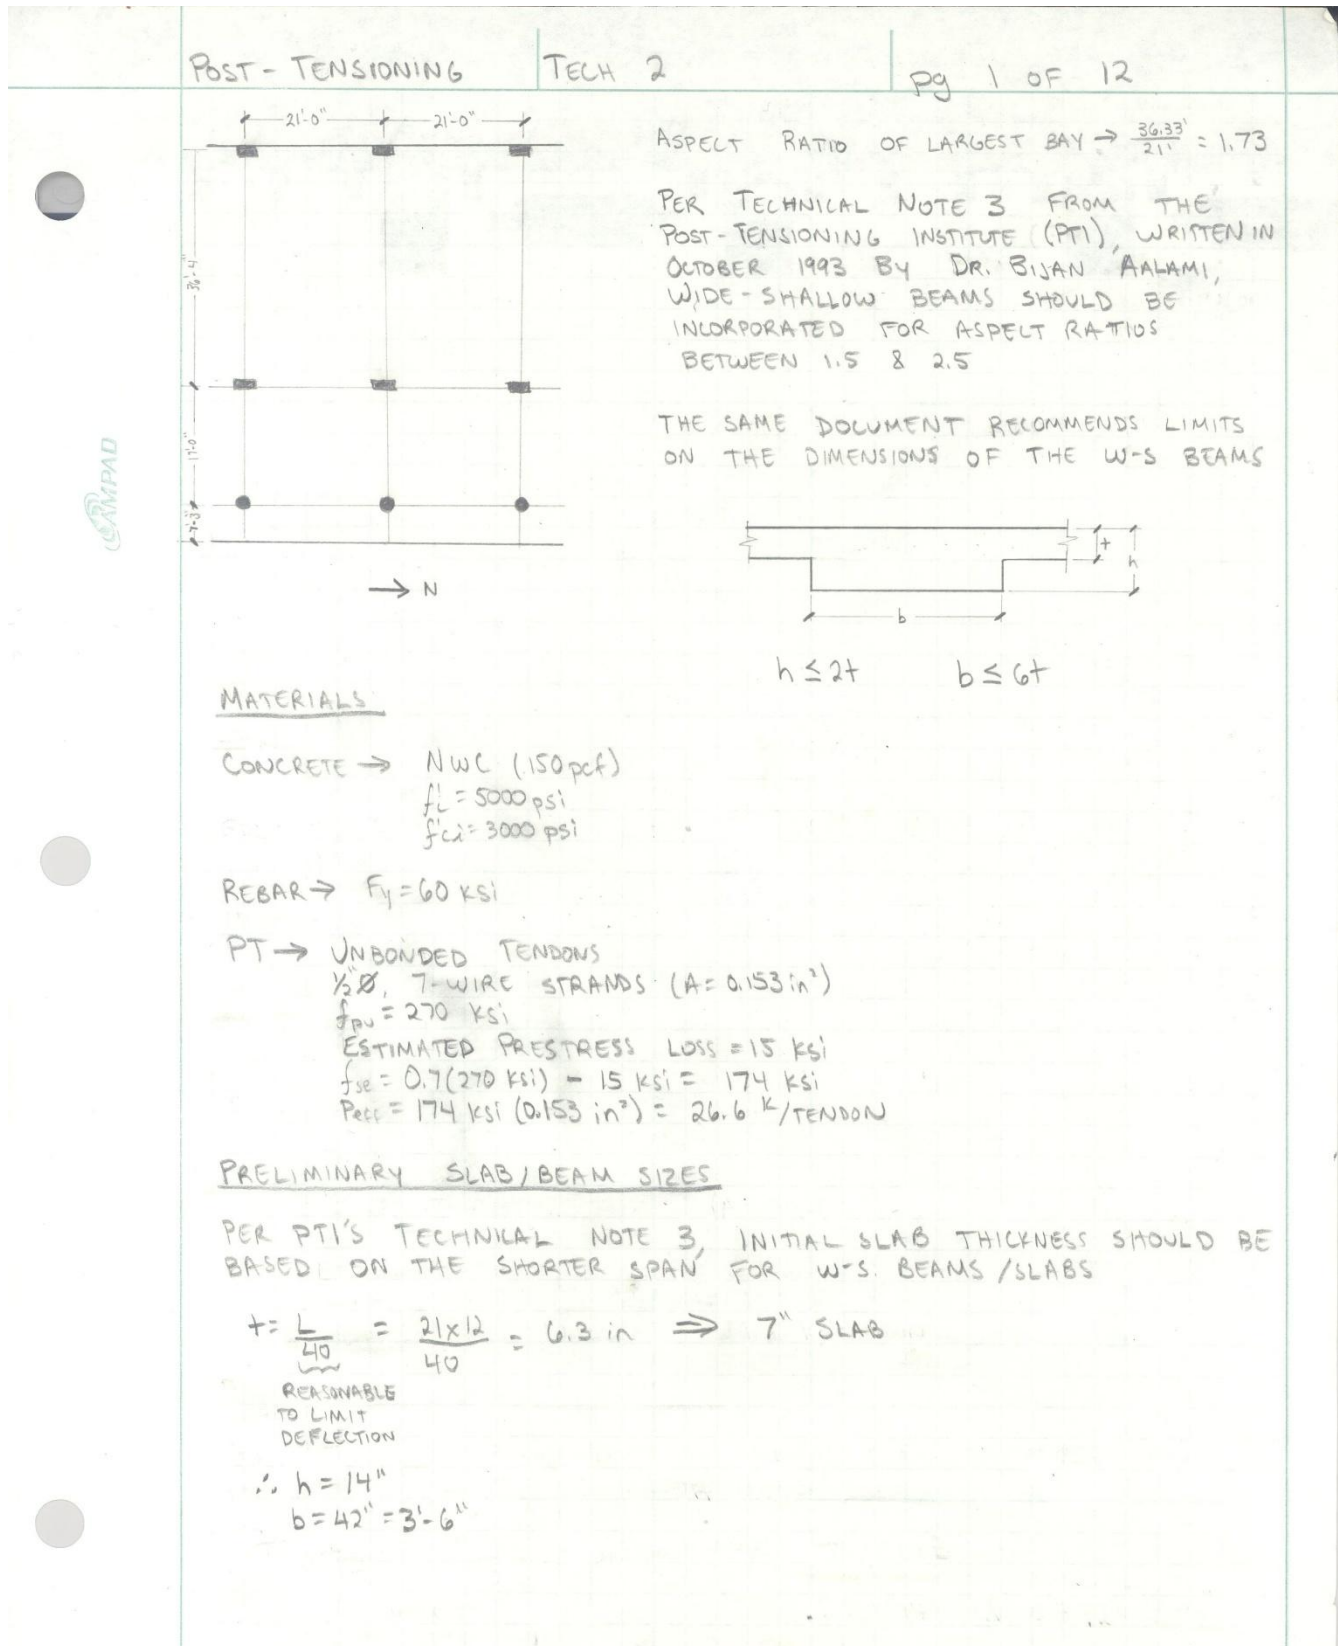 POST-TENSIONING TECH 2 pg 1 OF 12
21'-0" 21'-0"
36'-4"
7'-3"
→ N
AMPAD
ASPECT RATIO OF LARGEST BAY → 36.33'/21' = 1.73
PER TECHNICAL NOTE 3 FROM THE
POST-TENSIONING INSTITUTE (PTI), WRITTEN IN
OCTOBER 1993 BY DR. BIJAN AALAMI,
WIDE-SHALLOW BEAMS SHOULD BE
INCORPORATED FOR ASPECT RATIOS
BETWEEN 1.5 & 2.5
THE SAME DOCUMENT RECOMMENDS LIMITS
ON THE DIMENSIONS OF THE W-S BEAMS
t
h
b
h ≤ 2t b ≤ 6t
MATERIALS
CONCRETE → NWC (150 pcf)
f'c = 5000 psi
f'ci = 3000 psi
REBAR → Fy = 60 ksi
PT → UNBONDED TENDONS
1/2"Ø, 7-WIRE STRANDS (A = 0.153 in²)
fpu = 270 ksi
ESTIMATED PRESTRESS LOSS = 15 ksi
fse = 0.7(270 ksi) - 15 ksi = 174 ksi
Peff = 174 ksi (0.153 in²) = 26.6 k/TENDON
PRELIMINARY SLAB/BEAM SIZES
PER PTI'S TECHNICAL NOTE 3, INITIAL SLAB THICKNESS SHOULD BE
BASED ON THE SHORTER SPAN FOR W-S BEAMS/SLABS
t = L/40 = 21x12/40 = 6.3 in ⇒ 7" SLAB
REASONABLE
TO LIMIT
DEFLECTION
∴ h = 14"
b = 42" = 3'-6"